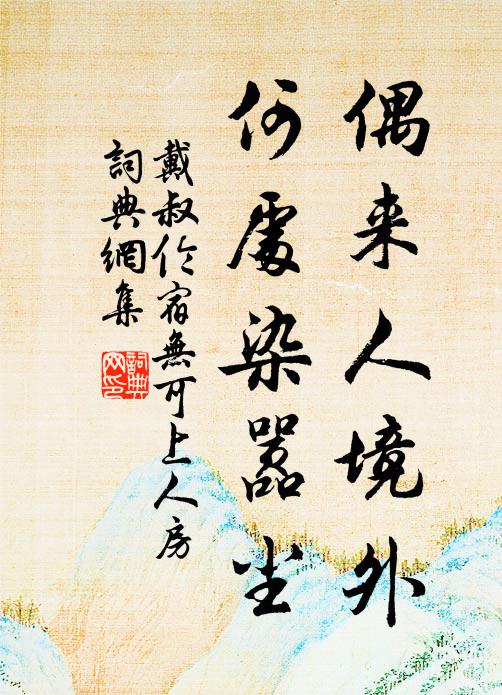 偶来人境外
何處染嚣尘
戴叔伦宿無可上人房
詞典網集
詞典
网印